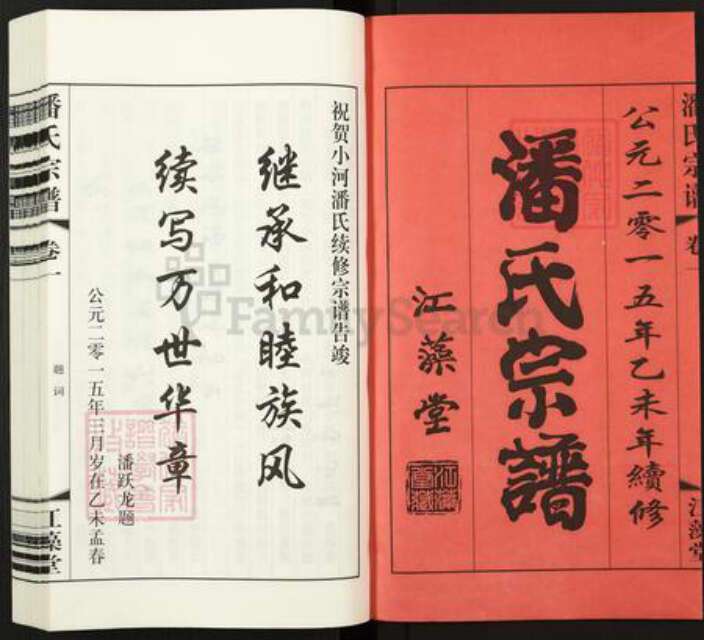 潘氏宗谱 卷一
公元二零一五年乙未年續修
潘氏宗譜
江藻堂
江藻堂
祝贺小河潘氏续修宗谱告竣
继承和睦族风
续写万世华章
潘跃龙题
公元二零一五年三月岁在乙未孟春
潘氏宗谱 卷一
题词
江藻堂
FamilySearch